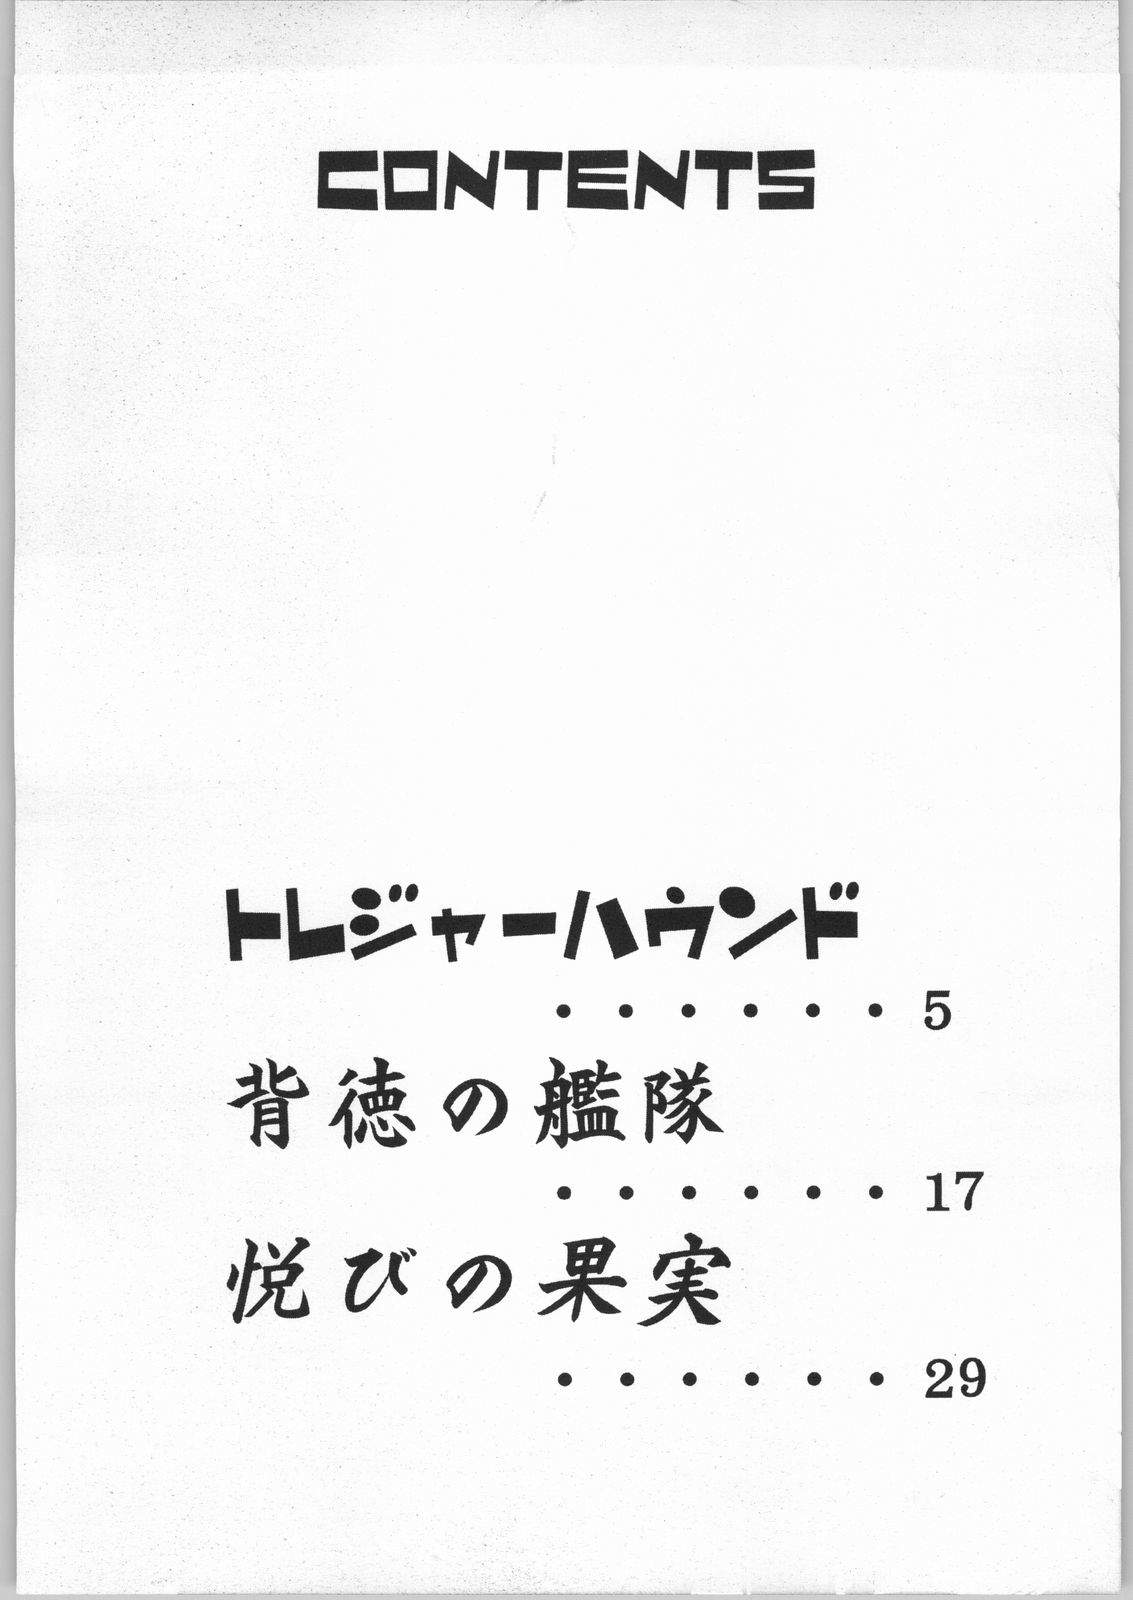 CONTENTS
トレジャーハウンド
・・・・・・5
背徳の艦隊
・・・・・・17
悦びの果実
・・・・・・29